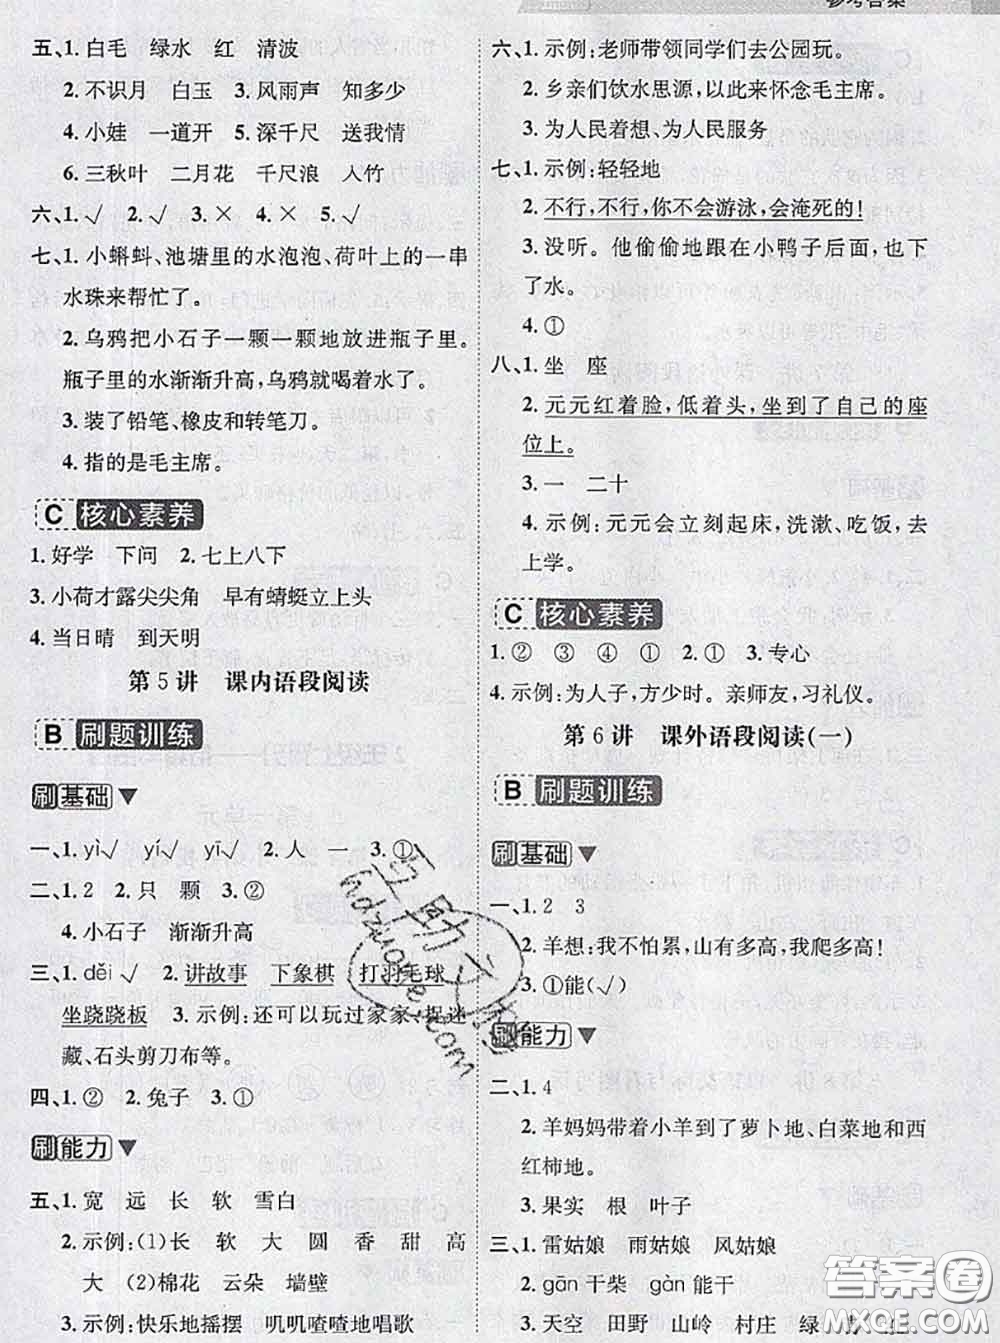 参考答案
五、1.白毛 绿水 红 清波
2.不识月 白玉 3.风雨声 知多少
4.小娃 一道开 5.深千尺 送我情
6.三秋叶 二月花 千尺浪 入竹
六、1.√ 2.√ 3.× 4.× 5.√
七、1.小蝌蚪、池塘里的水泡泡、荷叶上的一串
水珠来帮忙了。
2.乌鸦把小石子一颗一颗地放进瓶子里。
瓶子里的水渐渐升高,乌鸦就喝着水了。
3.装了铅笔、橡皮和转笔刀。
4.指的是毛主席。
C 核心素养
1.好学 下问 2.七上八下
3.小荷才露尖尖角 早有蜻蜓立上头
4.当日晴 到天明
第5讲 课内语段阅读
B 刷题训练
刷基础
一、1.yì√ yí√ yī√ 2.人 一 3.①
二、1.2 2.只 颗 3.②
4.小石子 渐渐升高
三、1.děi√ 2.讲故事 下象棋 打羽毛球
坐跷跷板 3.示例:还可以玩过家家、捉迷
藏、石头剪刀布等。
四、1.② 2.兔子 3.①
刷能力
五、1.宽 远 长 软 雪白
2.示例:(1)长 软 大 圆 香 甜 高
大 (2)棉花 云朵 墙壁
3.示例:快乐地摇摆 叽叽喳喳地唱歌
六、1.示例:老师带领同学们去公园玩。
2.乡亲们饮水思源,以此来怀念毛主席。
3.为人民着想、为人民服务
七、1.示例:轻轻地
2.不行,不行,你不会游泳,会淹死的!
3.没听。他偷偷地跟在小鸭子后面,也下
了水。
4.①
八、1.坐 座
2.元元红着脸,低着头,坐到了自己的座
位上。
3.一 二十
4.示例:元元会立刻起床,洗漱、吃饭,去
上学。
C 核心素养
1.② ③ ④ ① 2.① 3.专心
4.示例:为人子,方少时。亲师友,习礼仪。
第6讲 课外语段阅读(一)
B 刷题训练
刷基础
一、1.2 3
2.羊想:我不怕累,山有多高,我爬多高!
3.①能(√)
刷能力
二、1.4
2.羊妈妈带着小羊到了萝卜地、白菜地和西
红柿地。
3.果实 根 叶子
三、1.雷姑娘 雨姑娘 风姑娘
2.gān干柴 gàn能干
3.天空 田野 高山 村庄 绿
互助文库
hdzuoye.com
答案圈
MXQE.COM